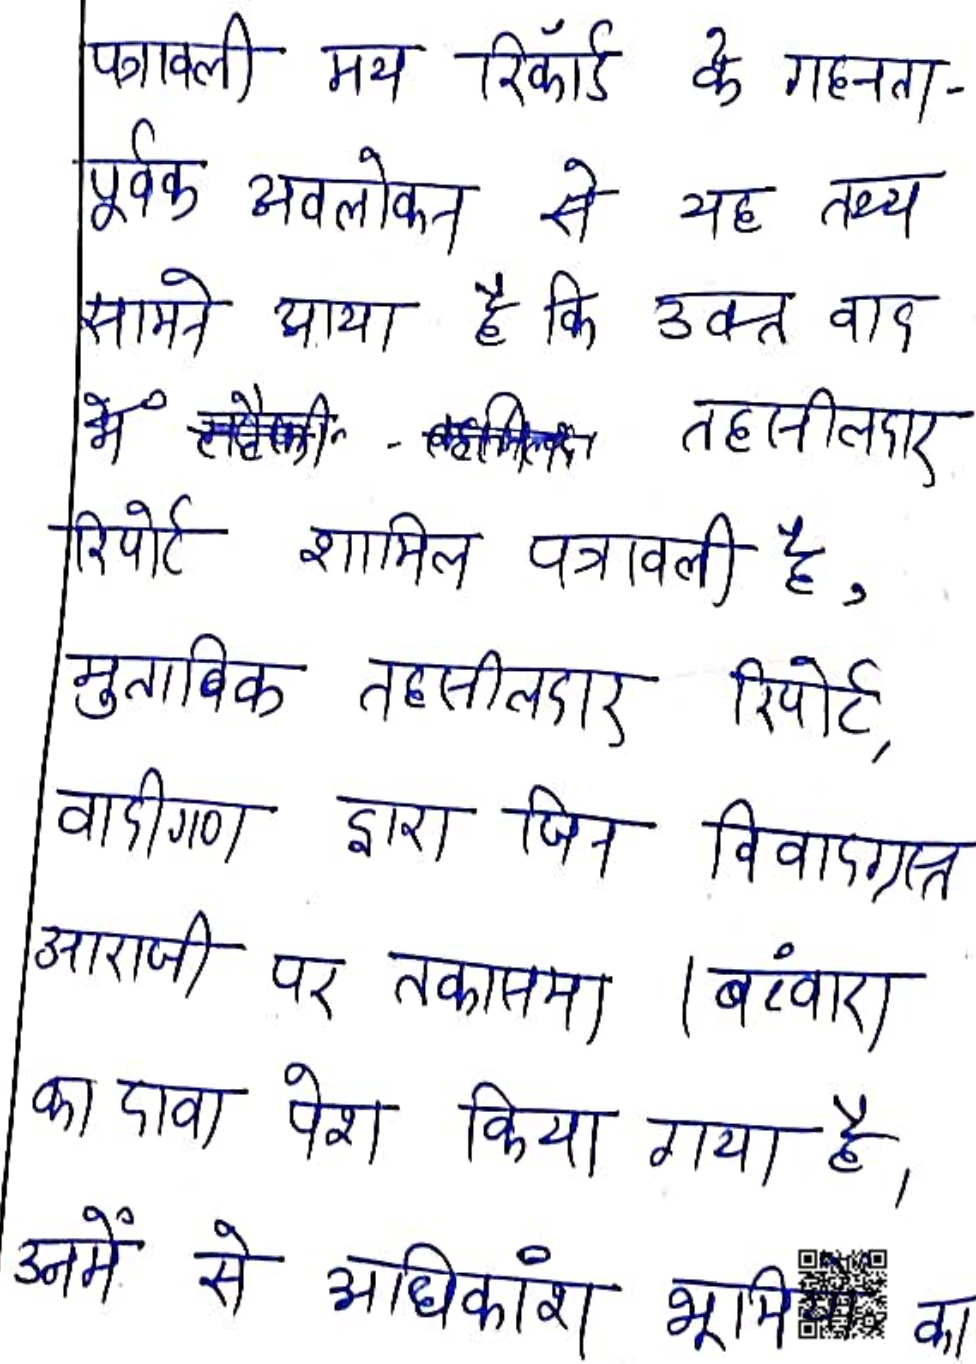 पत्रावली मय रिकॉर्ड के गहनता-
पूर्वक अवलोकन से यह तथ्य
सामने आया है कि उक्त वाद
में तहसीलदार
रिपोर्ट शामिल पत्रावली है,
मुताबिक तहसीलदार रिपोर्ट,
वादीगण द्वारा जिन विवादग्रस्त
आराजी पर तकासमा / बंटवारा
का दावा पेश किया गया है,
उनमें से अधिकांश का